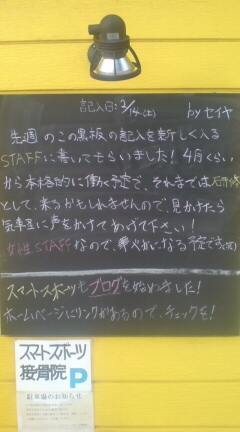 記入日:3/14(土) by セイヤ
先週のこの黒板の記入を新しく入る
STAFFに書いてもらいました!4月くらい
から本格的に働く予定で、それまでは研修
として、来るかもしれませんので、見かけたら
気軽に声をかけてあげて下さい!
女性STAFFなので、華やかになる予定です(笑)
スマートスポーツもブログを始めました!
ホームページにリンクがあるので、チェックを!
スマートスポーツ
接骨院 P
駐車場のお知らせ